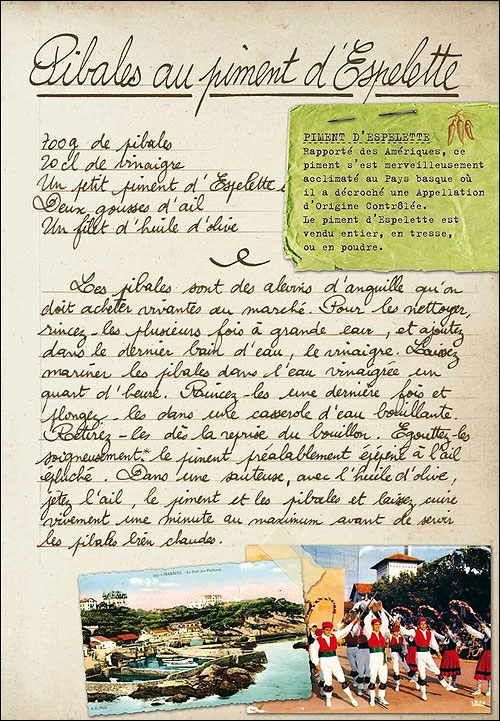 Pibales au piment d'Espelette
700g de pibales
20cl de vinaigre
Un petit piment d'Espelette
Deux gousses d'ail
Un filet d'huile d'olive
PIMENT D'ESPELETTE
Rapporté des Amériques, ce
piment s'est merveilleusement
acclimaté au Pays basque où
il a décroché une Appellation
d'Origine Contrôlée.
Le piment d'Espelette est
vendu entier, en tresse,
ou en poudre.
Les pibales sont des alevins d'anguille qu'on
doit acheter vivantes au marché. Pour les nettoyer,
rincez-les plusieurs fois à grande eau, et ajoutez
dans le dernier bain d'eau, le vinaigre. Laissez
mariner les pibales dans l'eau vinaigrée un
quart d'heure. Rincez-les une dernière fois et
plongez-les dans une casserole d'eau bouillante.
Retirez-les dès la reprise du bouillon. Egouttez-les
soigneusement. le piment préalablement épépiné à l'ail
épluché. Dans une sauteuse, avec l'huile d'olive,
jetez l'ail, le piment et les pibales et laissez cuire
vivement une minute au maximum avant de servir
les pibales bien chaudes.
BIARRITZ - Le Port des Pêcheurs